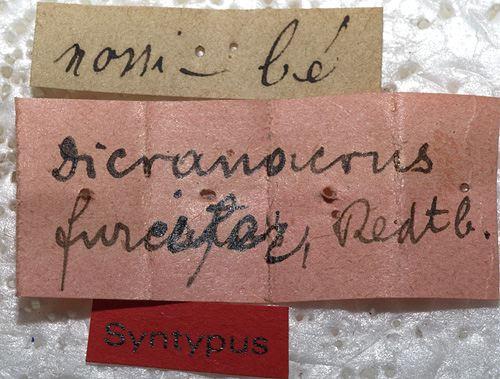 nossi-bé
Dicranacrus
furcifer, Redtb.
Syntypus